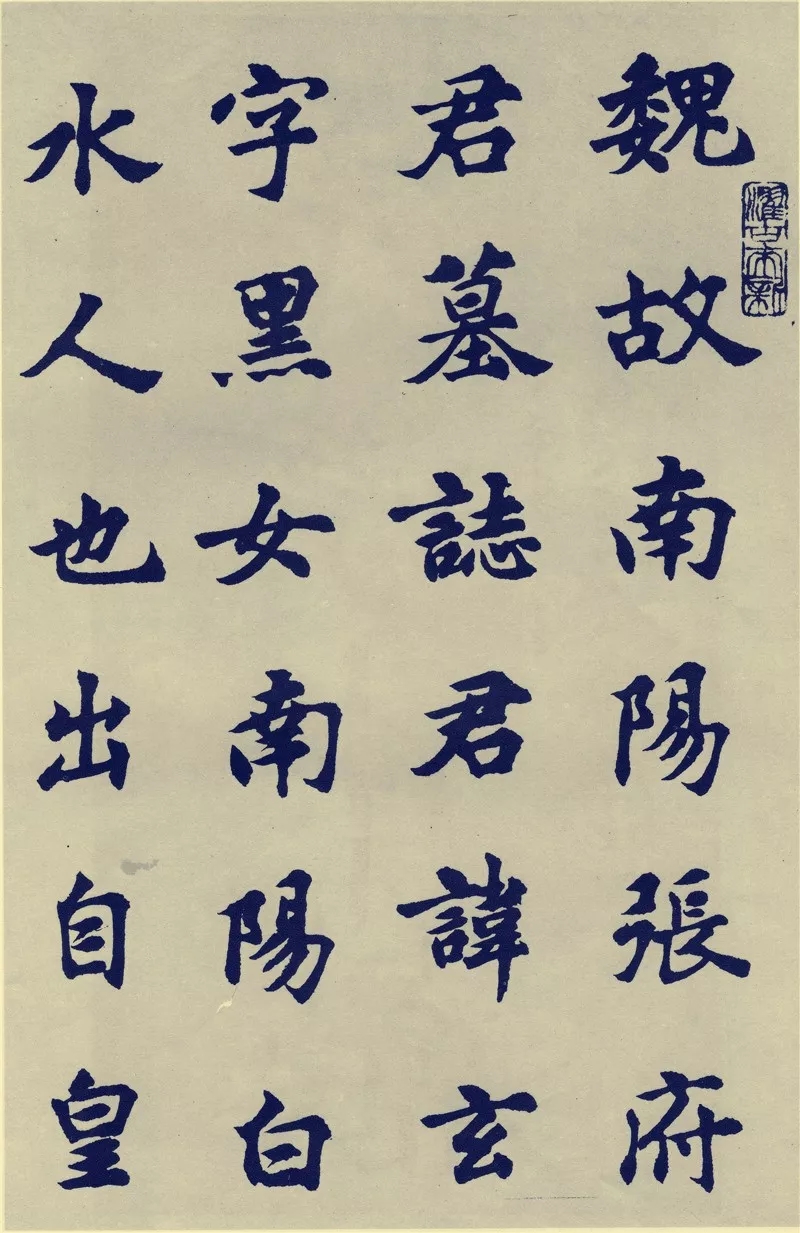 魏故南陽張府
君墓誌君諱玄
字黑女南陽白
水人也出自皇